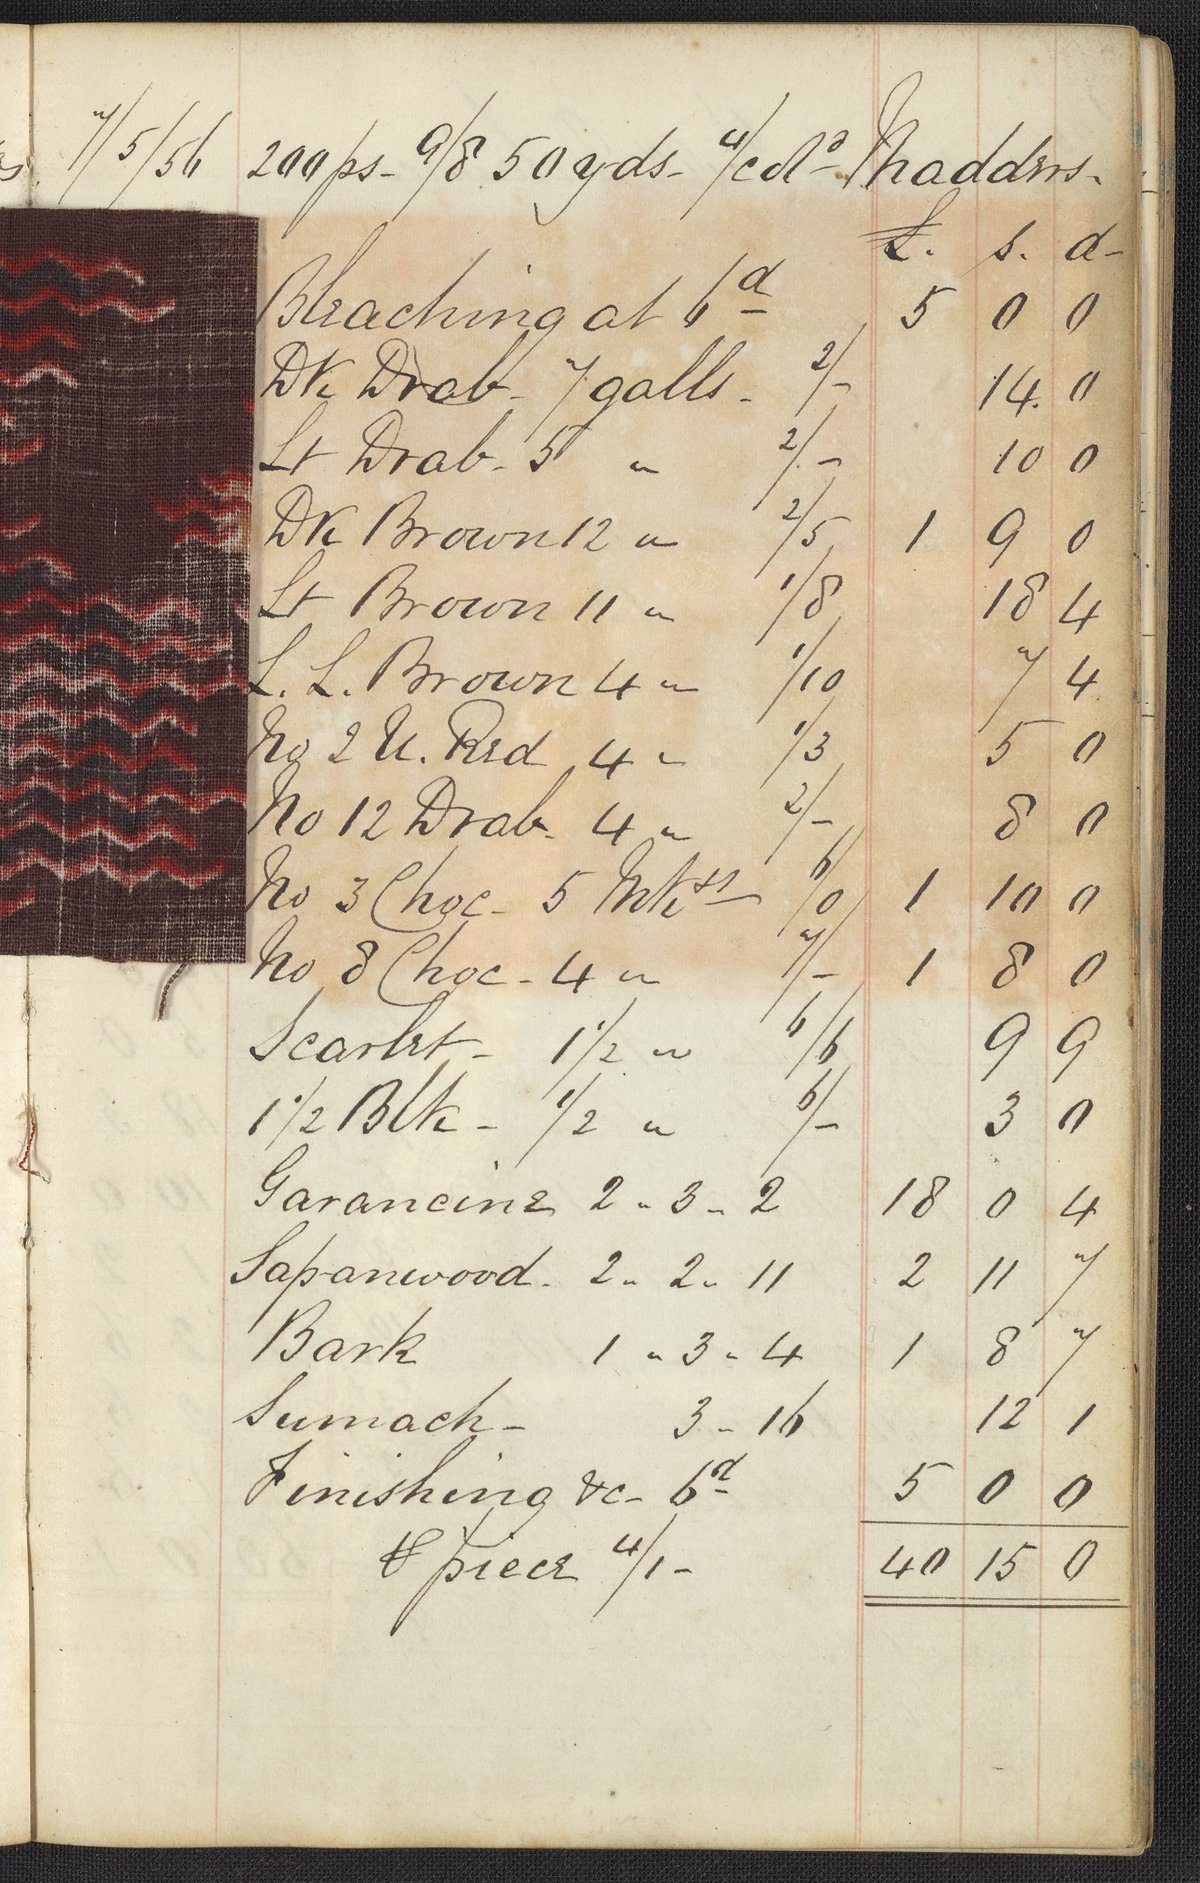 7/5/56 200 ps - 9/8 50 yds - 4/cols Madders.
£. s. d -
Bleaching at 6d 5 0 0
Dk Drab - 7 galls - 2/- 14. 0
Lt Drab - 5 " 2/- 10 0
Dk Brown 12 " 2/5 1 9 0
Lt Brown 11 " 1/8 18 4
L. L. Brown 4 " 1/10 7 4
No 2 U. Red 4 " 1/3 5 0
No 12 Drab - 4 " 2/- 8 0
No 3 Choc - 5 6/0 1 10 0
No 8 Choc - 4 " 7/- 1 8 0
Scarlet - 1 1/2 " 6/6 9 9
1 1/2 Blk - 1/2 " 6/- 3 0
Garancine 2 " 3 " 2 18 0 4
Sapanwood - 2 " 2 " 11 2 11 7
Bark 1 " 3 " 4 1 8 7
Sumach - 3 " 16 12 1
Finishing &c - 6d 5 0 0
⅌ piece 4/1 - 40 15 0